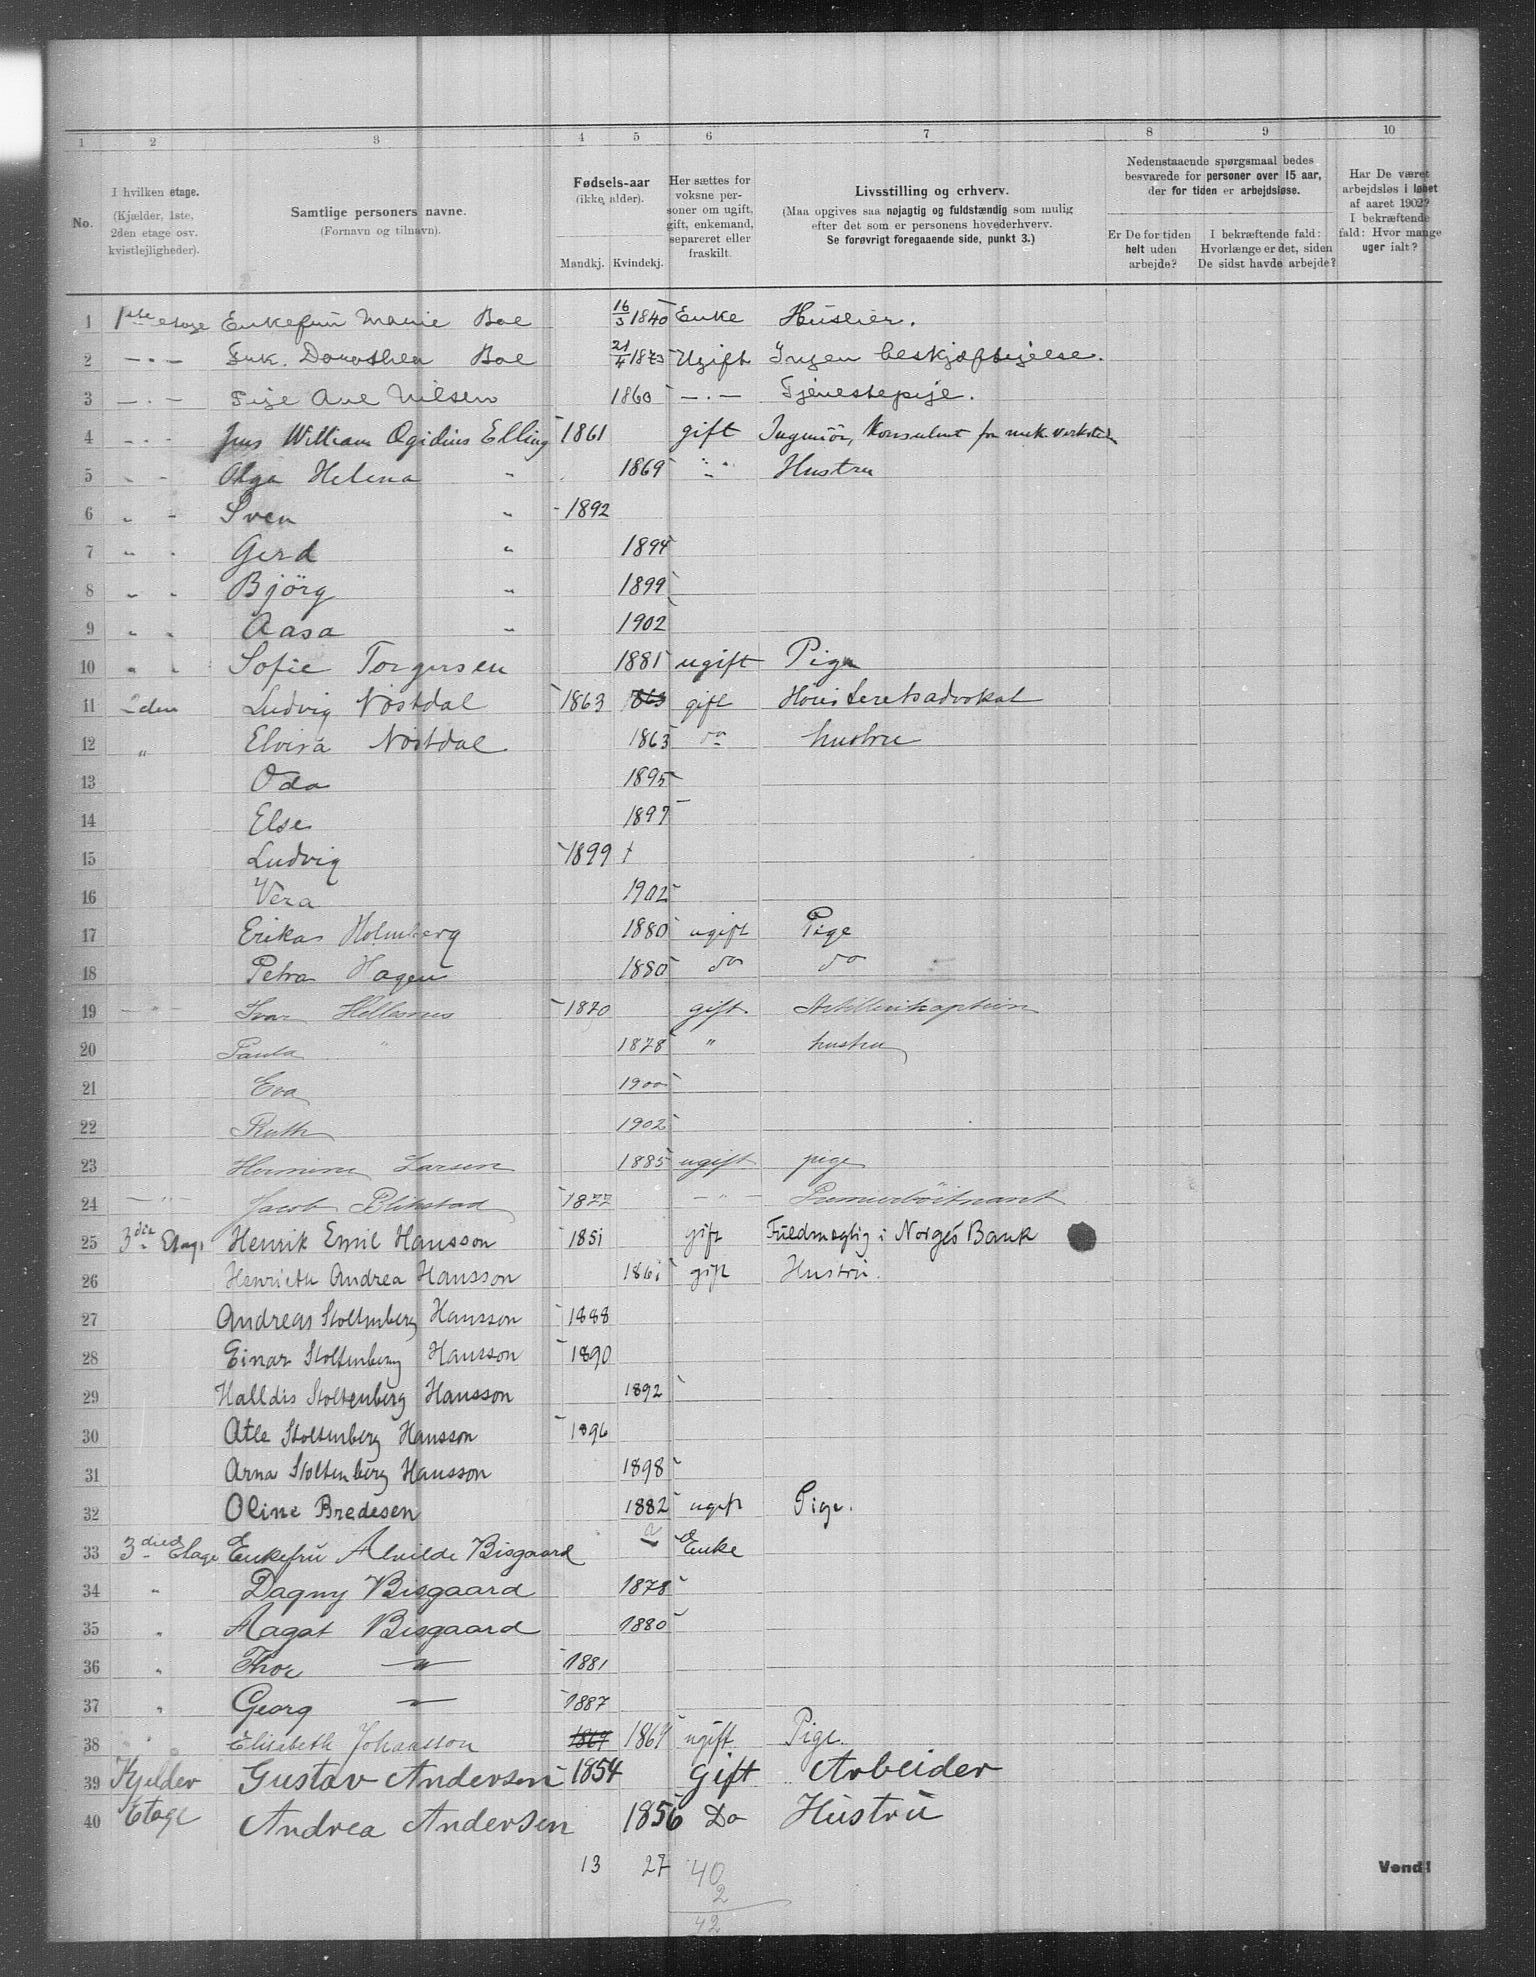 1 2 3 4 5 6 7 8 9 10
No.
I hvilken etage.
(Kjælder, 1ste,
2den etage osv.
kvistlejligheder).
Samtlige personers navne.
(Fornavn og tilnavn).
Fødsels-aar
(ikke alder).
Mandkj. Kvindekj.
Her sættes for
voksne per-
soner om ugift,
gift, enkemand,
separeret eller
fraskilt.
Livsstilling og erhverv.
(Maa opgives saa nøjagtig og fuldstændig som mulig
efter det som er personens hovederhverv.
Se forøvrigt foregaaende side, punkt 3.)
Nedenstaaende spørgsmaal bedes
besvarede for personer over 15 aar,
der for tiden er arbejdsløse.
Er De for tiden
helt uden
arbejde?
I bekræftende fald:
Hvorlænge er det, siden
De sidst havde arbejde?
Har De været
arbejdsløs i løbet
af aaret 1902?
I bekræftende
fald: Hvor mange
uger ialt?
1 1ste etage Enkefru Marie Boe 16/3 1840 Enke Huseier.
2 — · — Frk. Dorothea Boe 21/4 1873 Ugift Ingen beskjæftigelse.
3 — · — Pige Ane Nilsen 1860 — · — Tjenestepige.
4 - · - Jens William Ogidius Elling 1861 gift Ingeniör, Konsulent for mek. verksted
5 " - Olga Helena " 1869 " Hustru
6 " - Sven " 1892
7 " " Gerd " 1894
8 " " Björg " 1899
9 " " Aasa " 1902
10 " " Sofie Torgersen 1881 ugift Pige
11 2den Ludvig Nostdal 1863 1863 gift Høiesteretsadvokat
12 " Elvira Nostdal 1863 do hustru
13 Oda 1895
14 Else 1897
15 Ludvig 1899 †
16 Vera 1902
17 Erika Holmberg 1880 ugift Pige
18 Petra Hagen 1880 do do
19 - " - Ivar Hellesnes 1870 gift Artillerikaptein
20 Paula " 1878 " hustru
21 Eva 1900
22 Ruth 1902
23 Hermine Larsen 1885 ugift pige
24 — " — Jacob Blikstad 1877 — " — Premierlöitnant
25 3die Etage Henrik Emil Hansson 1851 gift Fuldmægtig i Norges Bank
26 Henriette Andrea Hansson 1861 gift Hustru.
27 Andreas Stoltenberg Hansson 1888
28 Einar Stoltenberg Hansson 1890
29 Halldis Stoltenberg Hansson 1892
30 Atle Stoltenberg Hansson 1896
31 Arna Stoltenberg Hansson 1898
32 Oline Bredesen 1882 ugift Pige.
33 3die Etage Enkefru Alvilde Bisgaard Enke
34 " Dagny Bisgaard 1878
35 " Aagot Bisgaard 1880
36 " Thor — " — 1881
37 " Georg — " — 1887
38 " Elisabeth Johansson 1869 1869 ugift Pige.
39 Kjelder Gustav Andersen 1854 Gift Arbeider
40 Etage Andrea Andersen 1856 Do Hustru
13 27 40
2
42
Vend!